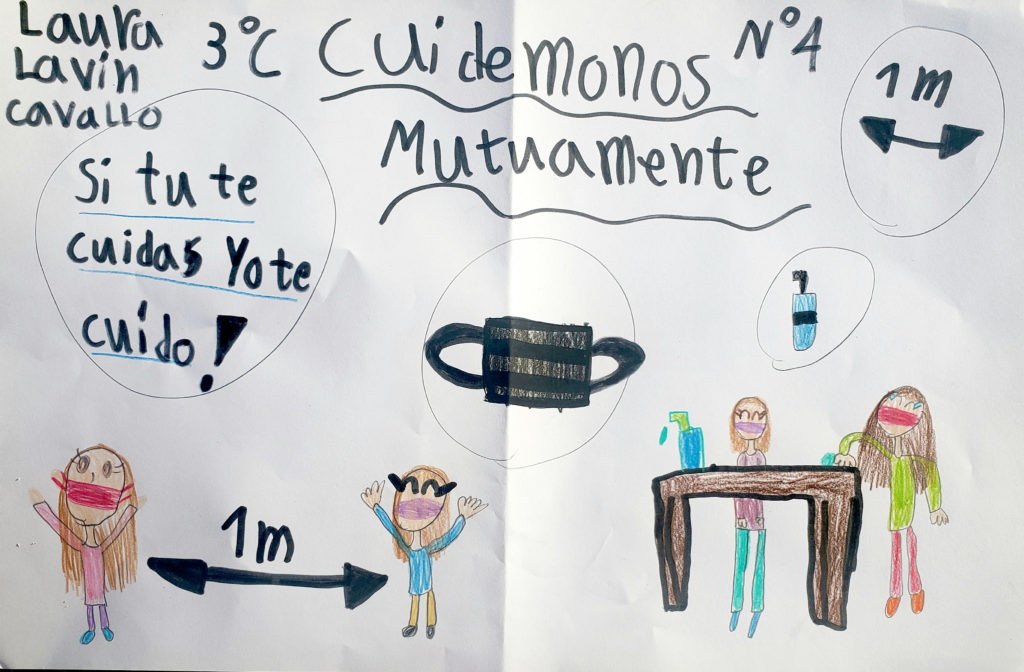 Laura
Lavin
cavallo
3°C
Cuidemonos
N°4
Mutuamente
1m
Si tu te
cuidas Yo te
cuido!
1m